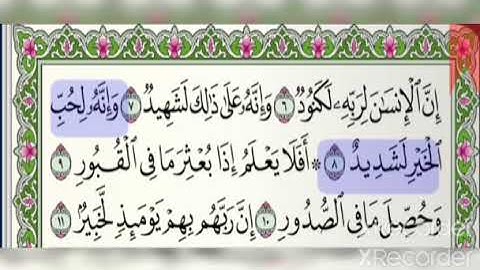 إِنَّ ٱلْإِنسَٰنَ لِرَبِّهِۦ لَكَنُودٌ ٦ وَإِنَّهُۥ عَلَىٰ ذَٰلِكَ لَشَهِيدٌ ٧ وَإِنَّهُۥ لِحُبِّ
ٱلْخَيْرِ لَشَدِيدٌ ٨ ۞ أَفَلَا يَعْلَمُ إِذَا بُعْثِرَ مَا فِى ٱلْقُبُورِ ٩
وَحُصِّلَ مَا فِى ٱلصُّدُورِ ١٠ إِنَّ رَبَّهُم بِهِمْ يَوْمَئِذٍ لَّخَبِيرٌۢ ١١
Made with
XRecorder